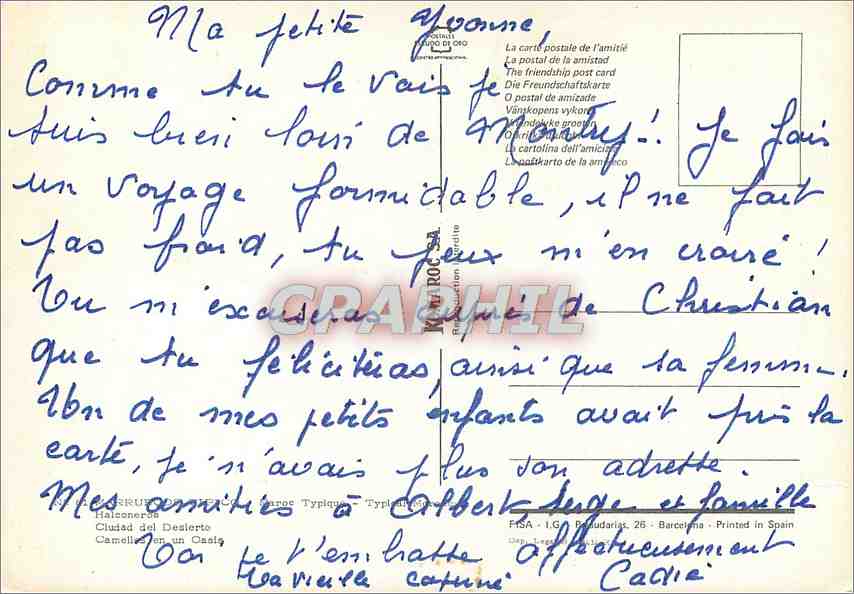 Ma petite Yvonne,
POSTALES
ESCUDO DE ORO
La carte postale de l'amitié
La postal de la amistad
The friendship post card
Die Freundschaftskarte
O postal de amizade
Vänskopens vykort
La cartolina dell'amicizia
La postkarto de la amikeco
Comme tu le vois je
suis bien loin de Montry! Je fais
un voyage formidable, il ne fait
pas froid, tu peux m'en croire!
Tu m'excuseras auprès de Christian
que tu féliciteras, ainsi que sa femme.
Un de mes petits enfants avait pris la
carte, je n'avais plus son adresse.
Mes amitiés à Albert, Serge et famille
Toi je t'embrasse affectueusement
ta vieille copine Cadie
MAROC S.A.
Reproduction interdite
CPAPHIL
Maroc Typique - Typical
Halconeros
Ciudad del Desierto
Camellos en un Oasis
FISA - I.G. Palaudarias, 26 - Barcelona - Printed in Spain
Dep. Legal